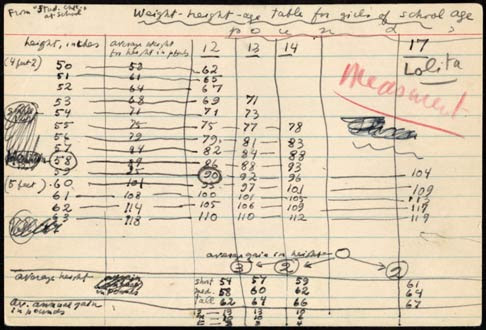 From "Stud. at school
Weight-height-age table for girls of school age
pounds
height, inches average weight for height in pounds 12 13 14 17
(4 feet 2) 50 58 62 Lolita
51 61 65
52 64 67 Measment
53 68 69 71
54 71 71 73
55 75 75 77 78
56 79 79 81 83
57 84 82 84 88
58 89 86 88 93
59 95 90 92 96 104
(5 feet) 60 101 95 97 101 109
61 108 100 101 105
62 114 105 106 109 117
63 118 110 110 112 119
average gain in height
3 2 2
average height short 54 57 59 61
med. 58 60 62 64
tall 62 64 66 67
av. annual gain
in pounds